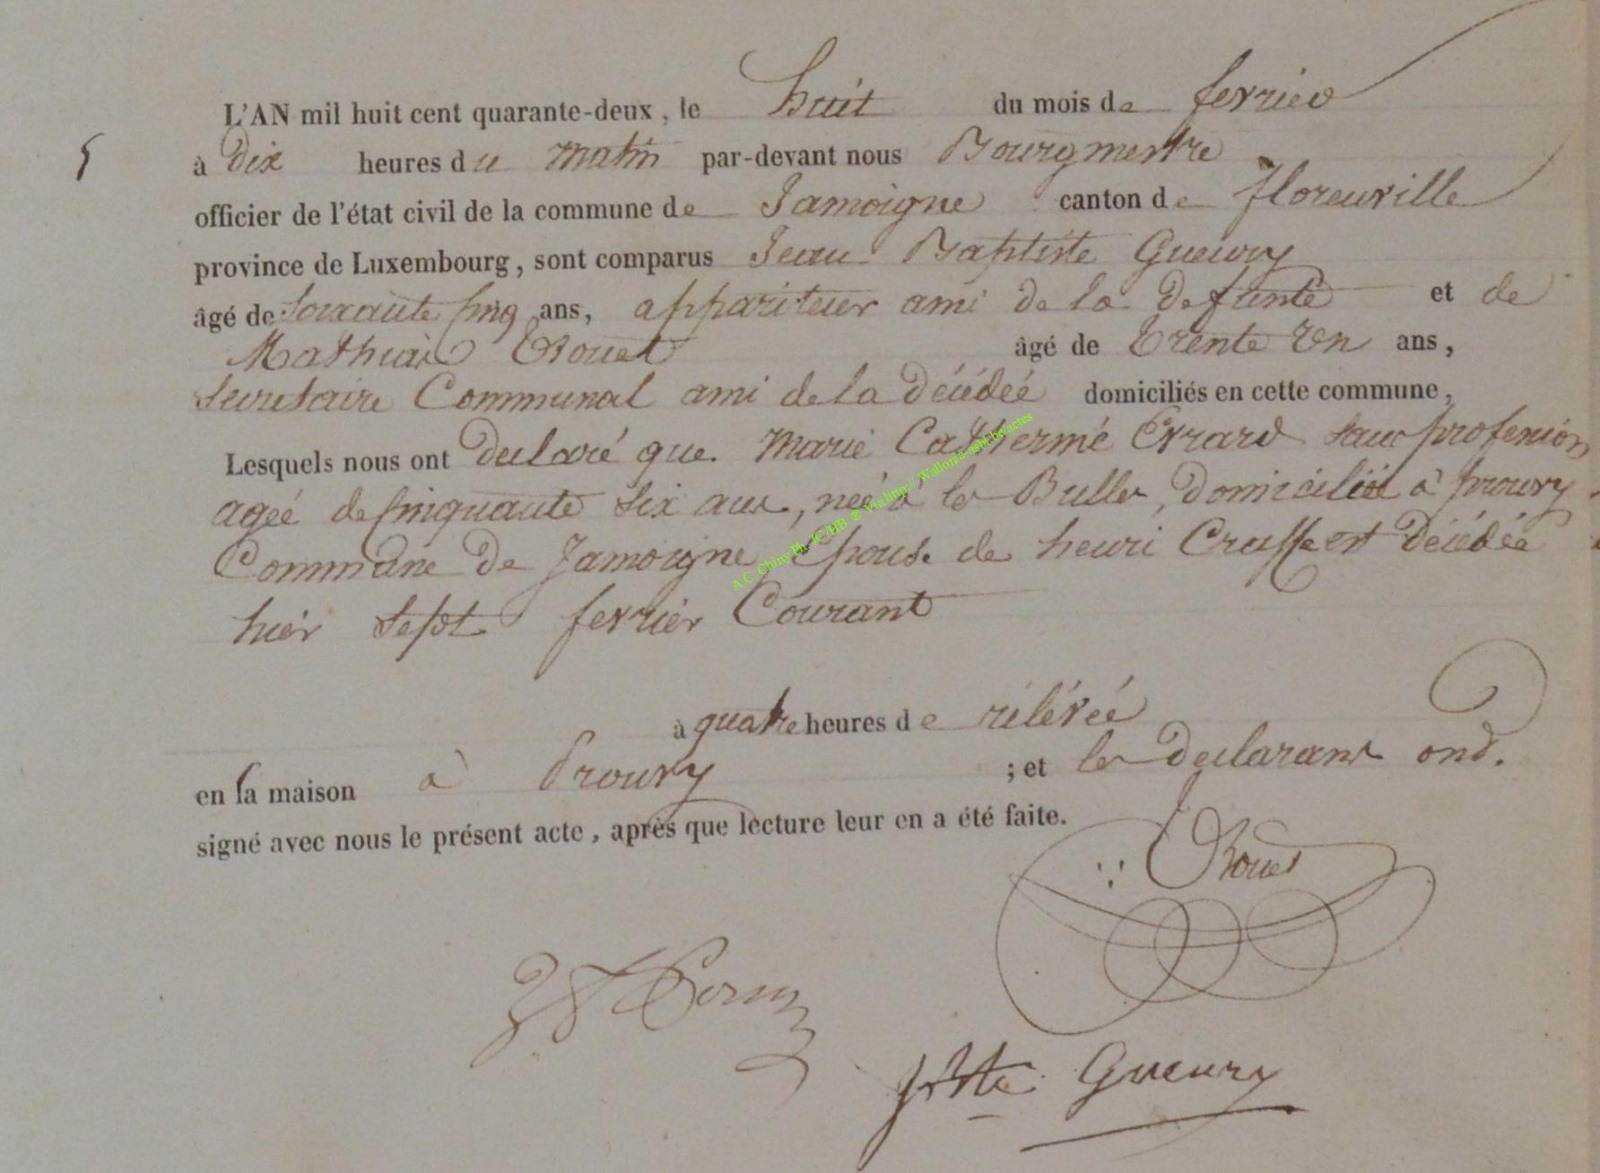 L'AN mil huit cent quarante-deux, le huit du mois de fevrier
5
à dix heures du matin par-devant nous Bourgmestre
officier de l'état civil de la commune de Jamoigne canton de floreuville
province de Luxembourg, sont comparus Jean Baptiste Gueury
âgé de Soixante cinq ans, appariteur ami de la defunte et de
Mathias Rouet âgé de trente un ans,
Secretaire Communal ami de la décédéé domiciliés en cette commune,
Lesquels nous ont declaré que Marie Evrard sans profession
ageé de cinquante six ans, neé à les Bulles, domiciliée à prouvy
Commune de Jamoigne, Epouse de henri est décédée
hier Sept fevrier Courant
à quatre heures de rélévéé
en sa maison à Prouvy ; et les declarans ond.
signé avec nous le présent acte, après que lecture leur en a été faite.
Rouet
Gueury